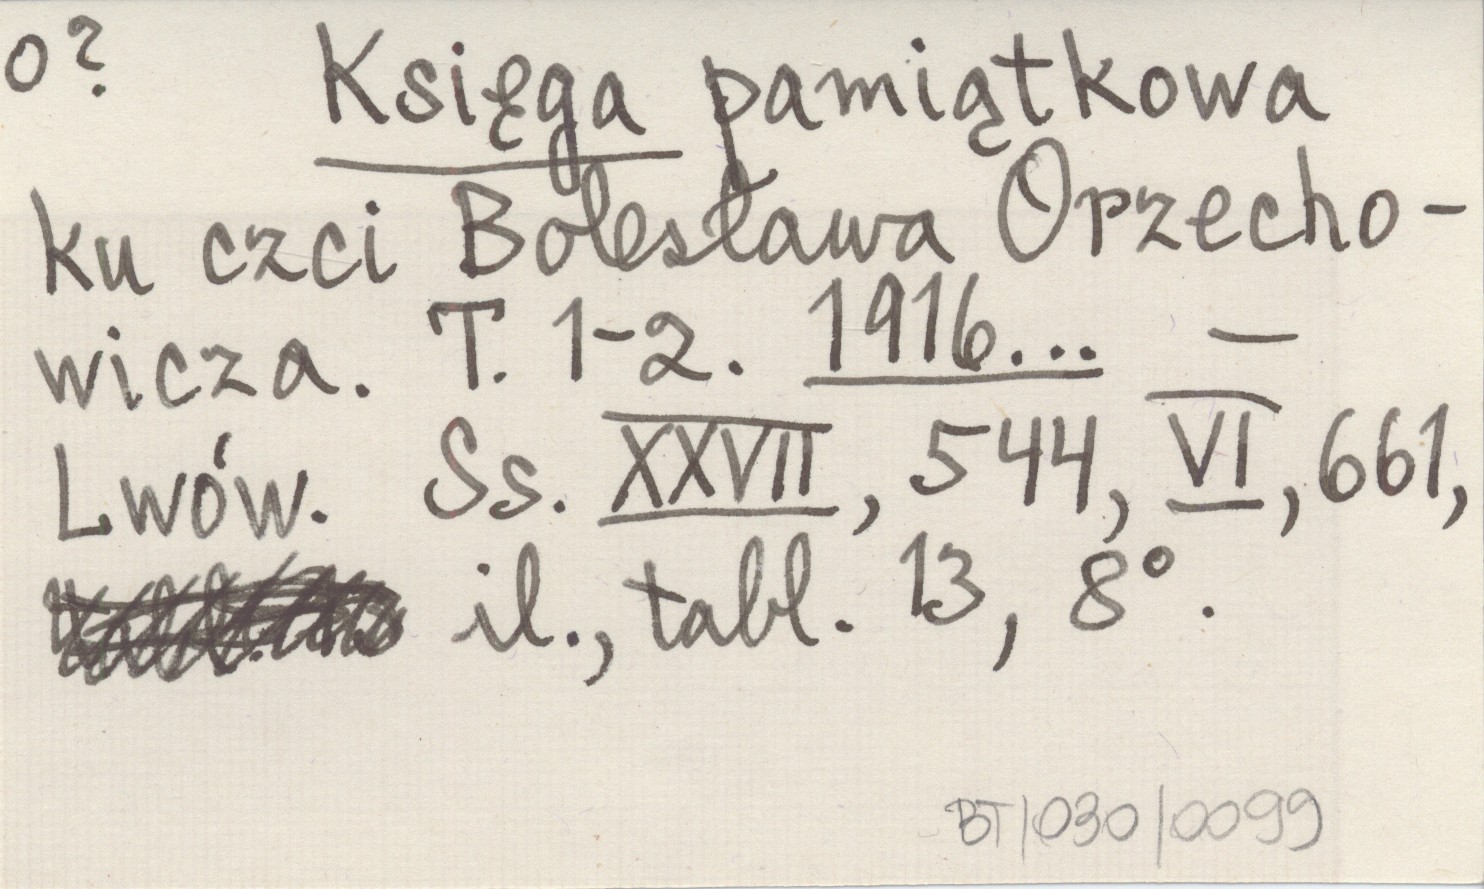 o? Księga pamiątkowa
ku czci Bolesława Orzecho-
wicza. T. 1-2. 1916... —
Lwów. Ss. XXVII, 544, VI, 661,
il., tabl. 13, 8°.
BT/030/0099